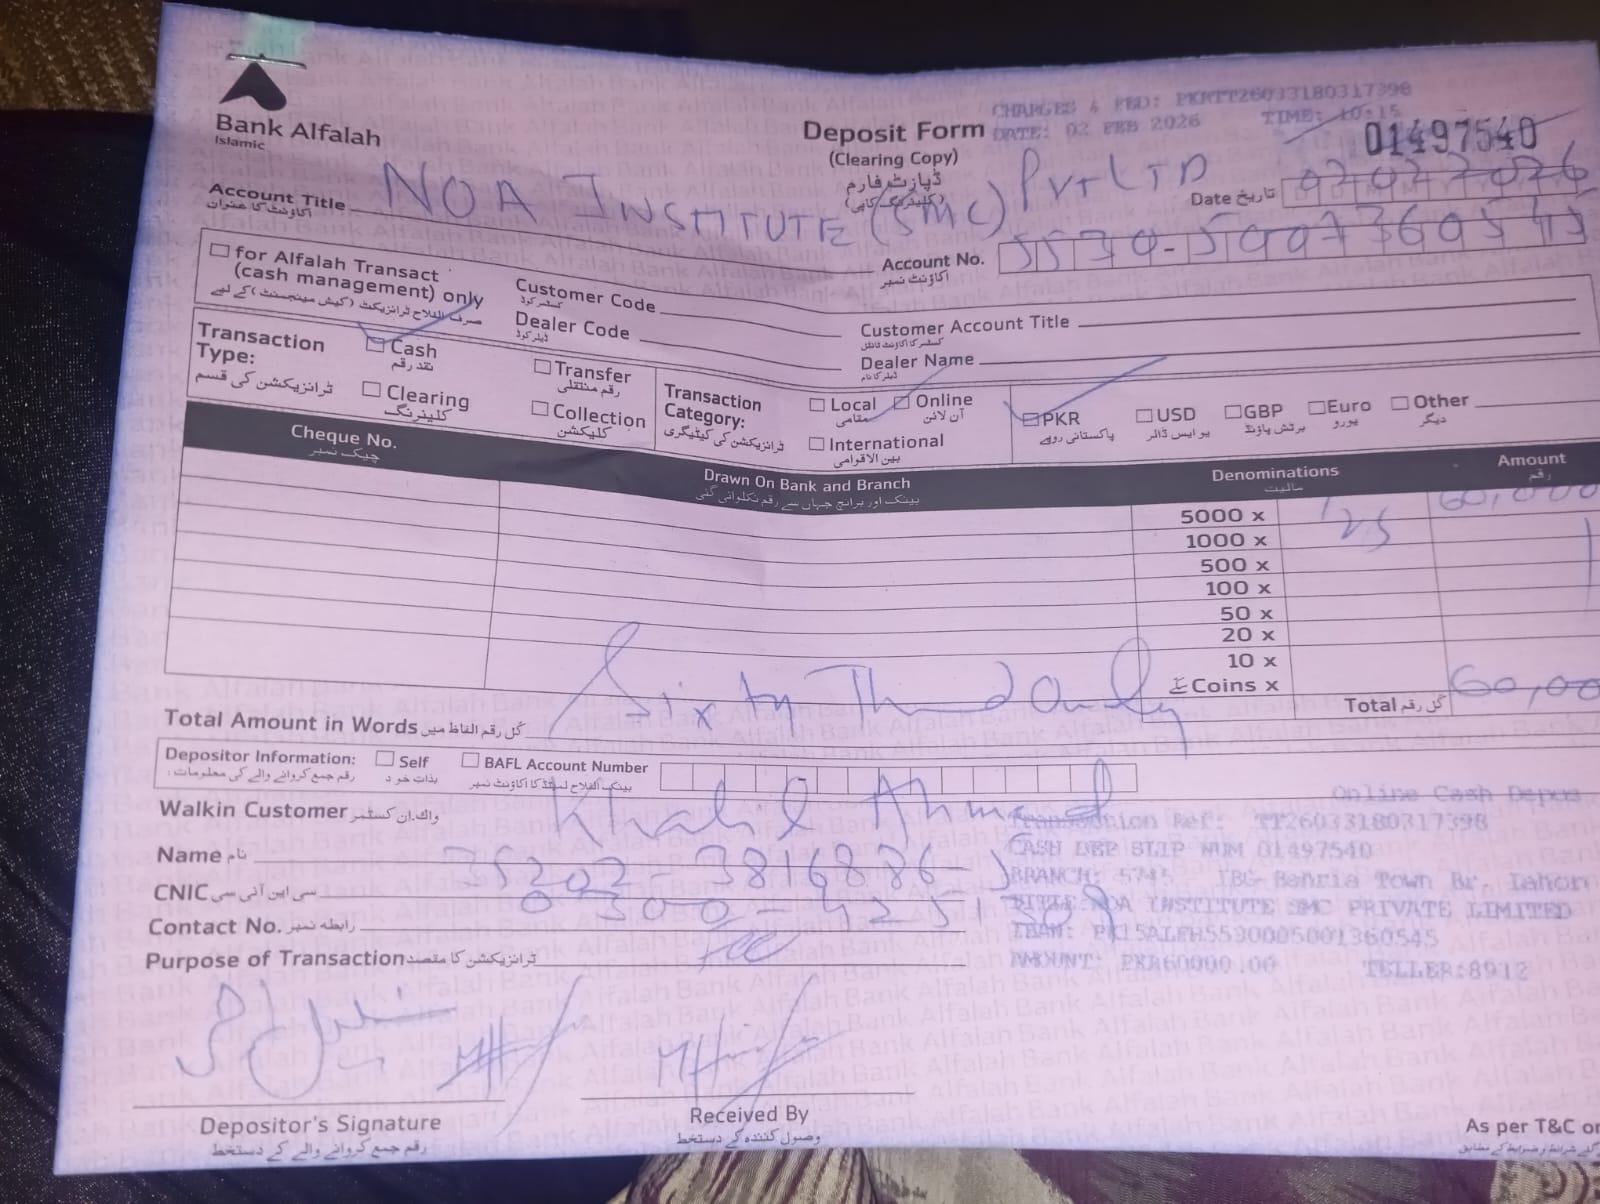 Bank Alfalah
Islamic
Deposit Form
(Clearing Copy)
ڈپازٹ فارم
(کلیئرنگ کاپی)
CHARGES & FED: PKRTT26033180317398
DATE: 02 FEB 2026 TIME: 10:15
01497540
Date تاریخ 02022026
Account Title NOA INSTITUTE (SMC) PVT LTD
اکاؤنٹ کا عنوان
Account No.
اکاؤنٹ نمبر
for Alfalah Transact
(cash management) only
صرف الفلاح ٹرانزیکٹ (کیش مینجمنٹ) کے لیے
Customer Code
کسٹمر کوڈ
Dealer Code
ڈیلر کوڈ
Customer Account Title
کسٹمر کا اکاؤنٹ ٹائٹل
Dealer Name
ڈیلر کا نام
Transaction Type:
ٹرانزیکشن کی قسم
Cash
نقد رقم
Transfer
رقم منتقلی
Clearing
کلیئرنگ
Collection
کلیکشن
Transaction Category:
ٹرانزیکشن کی کیٹیگری
Local
مقامی
Online
آن لائن
International
بین الاقوامی
PKR
پاکستانی روپے
USD
یو ایس ڈالر
GBP
برٹش پاؤنڈ
Euro
یورو
Other
دیگر
Cheque No.
چیک نمبر
Drawn On Bank and Branch
بینک اور برانچ جہاں سے رقم نکلوائی گئی
Denominations
مالیت
Amount
رقم
5000 x
1000 x
500 x
100 x
50 x
20 x
10 x
Coins x
Total کل رقم 60,00
Total Amount in Words کل رقم الفاظ میں Sixty Thousand only
Depositor Information:
رقم جمع کروانے والے کی معلومات:
Self
بذات خود
BAFL Account Number
بینک الفلاح لمیٹڈ کا اکاؤنٹ نمبر
Walkin Customer واک ان کسٹمر
Name نام Khalil Ahmad
CNIC سی این آئی سی 35202-3816886-
Contact No. رابطہ نمبر
Purpose of Transaction ٹرانزیکشن کا مقصد Fee
Online Cash Depos
Transaction Ref: TT26033180317398
CASH DEP SLIP NUM 01497540
BRANCH: 5745 IBG-Bahria Town Br, Lahor
TITLE: NOA INSTITUTE SMC PRIVATE LIMITED
IBAN: PK15ALFH5530005001360545
AMOUNT: PKR60000.00 TELLER:8912
Depositor's Signature
رقم جمع کروانے والے کے دستخط
Received By
وصول کنندہ کے دستخط
As per T&C